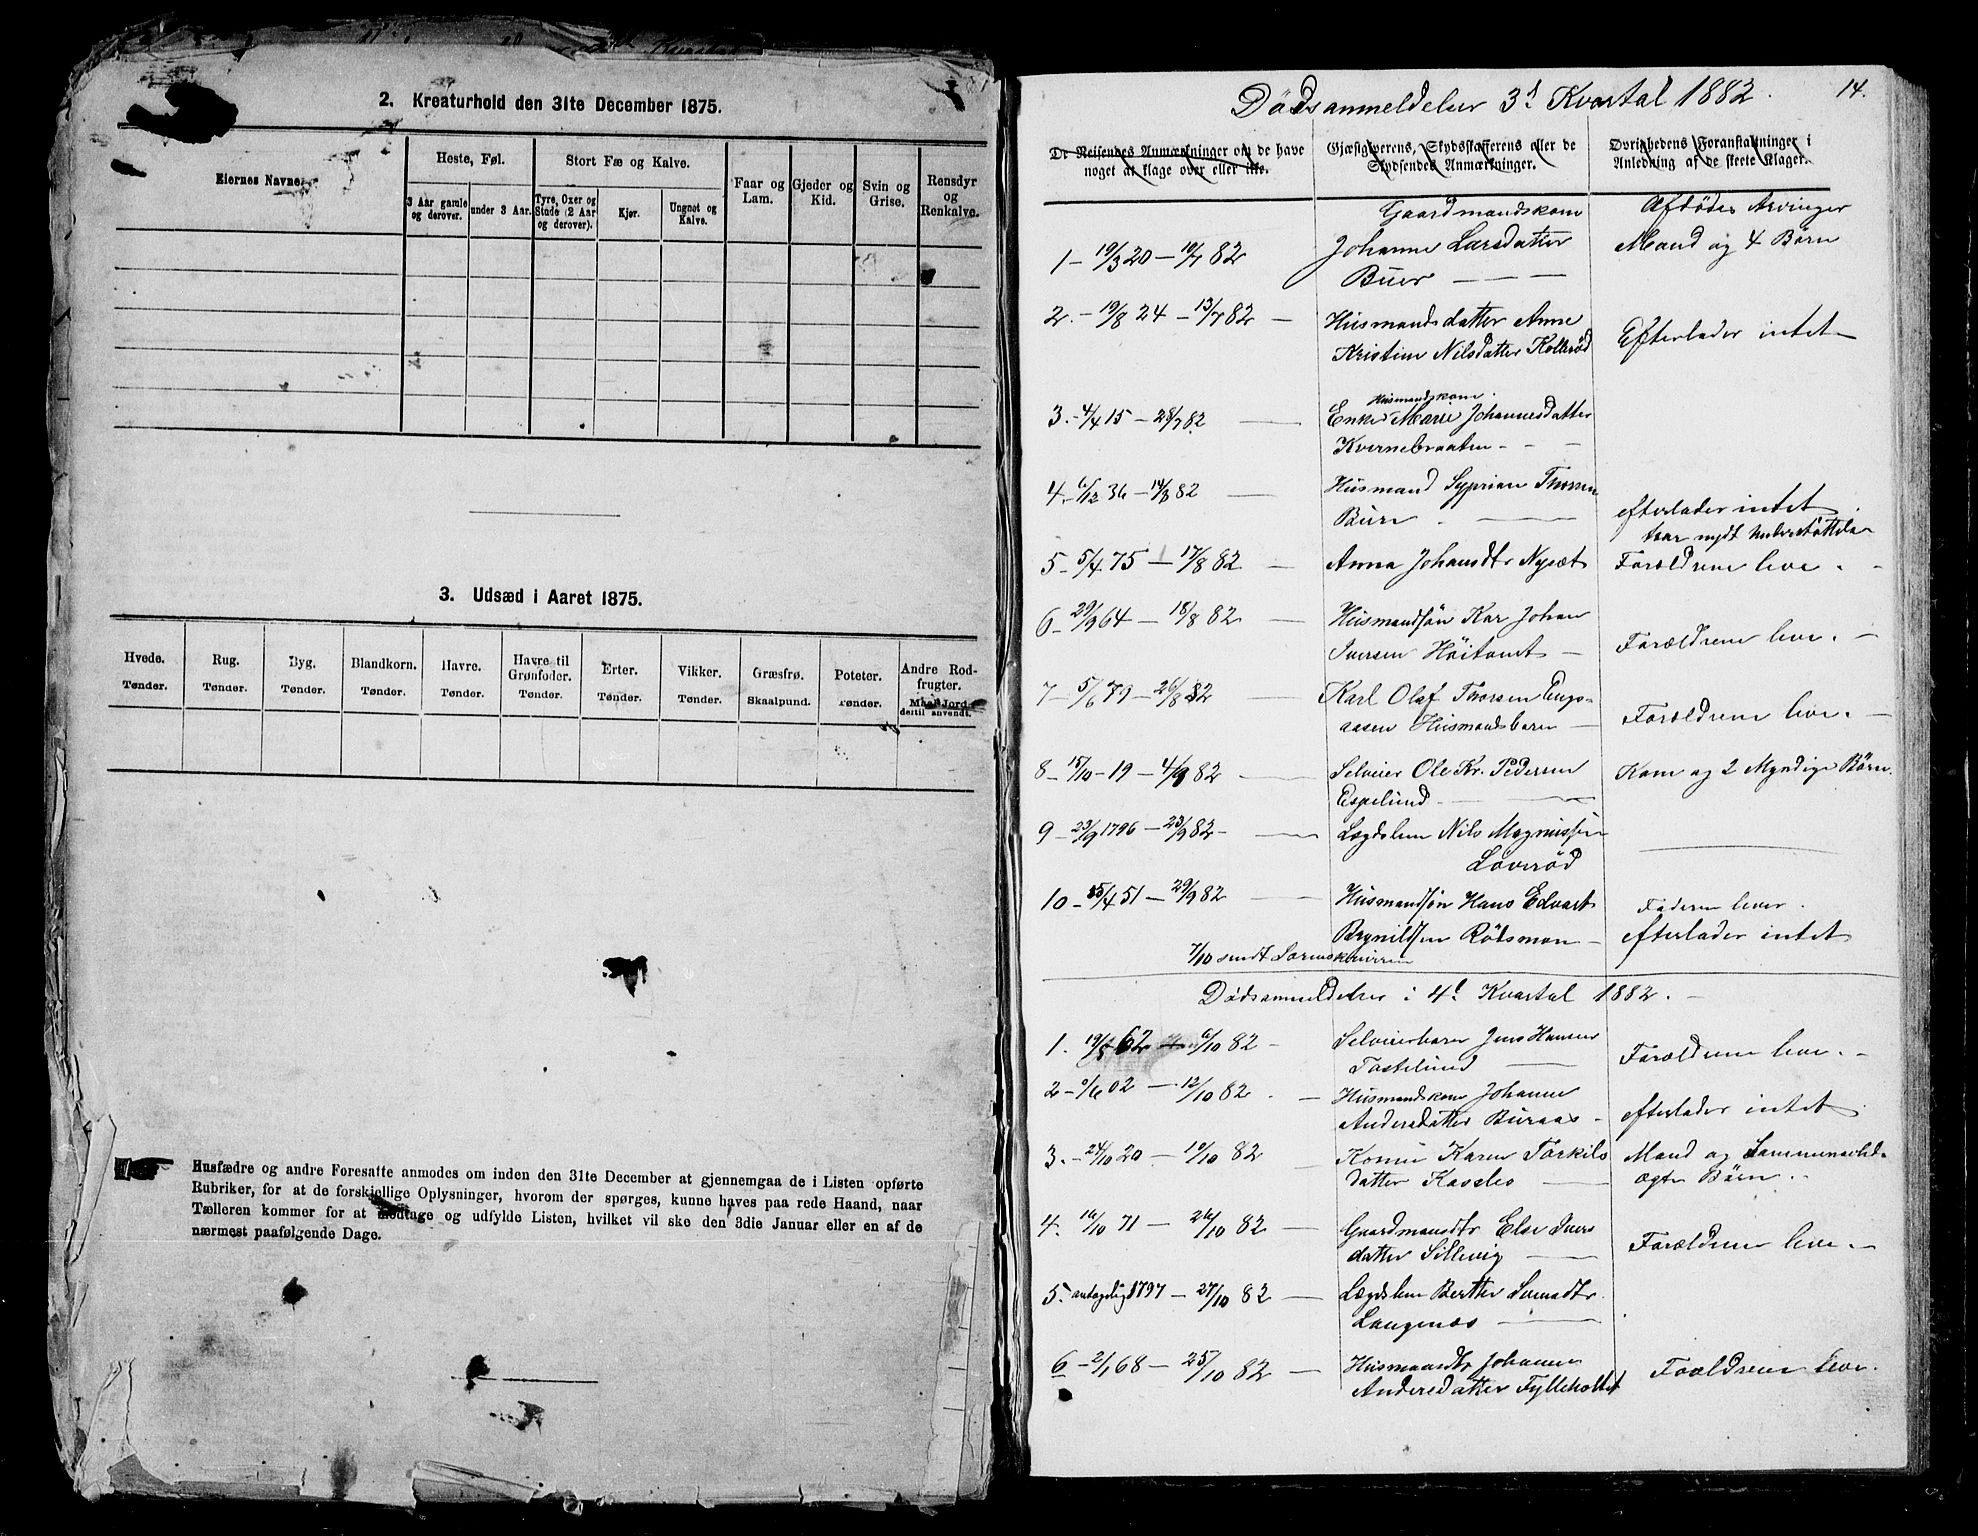 2. Kreaturhold den 31te December 1875.
Eiernes Navne.
Heste, Føl.
Stort Fæ og Kalve.
Faar og Lam.
Gjeder og Kid.
Svin og Grise.
Rensdyr og Renkalve.
3 Aar gamle og derover.
under 3 Aar.
Tyre, Oxer og Stude (2 Aar og derover).
Kjør.
Ungnøt og Kalve.
3. Udsæd i Aaret 1875.
Hvede. Rug. Byg. Blandkorn. Havre. Havre til Grønfoder. Erter. Vikker. Græsfrø. Poteter. Andre Rodfrugter.
Tønder. Tønder. Tønder. Tønder. Tønder. Tønder. Tønder. Tønder. Skaalpund. Tønder. Maal Jord dertil anvendt.
Husfædre og andre Foresatte anmodes om inden den 31te December at gjennemgaa de i Listen opførte
Rubriker, for at de forskjellige Oplysninger, hvorom der spørges, kunne haves paa rede Haand, naar
Tælleren kommer for at modtage og udfylde Listen, hvilket vil ske den 3die Januar eller en af de
nærmest paafølgende Dage.
Dødsanmeldelser 3d Kvartal 1882. 14.
De Reisendes Anmærkninger om de have
noget at klage over eller ikke.
Gjæstgiverens, Skydsskafferens eller de
Skydsendes Anmærkninger.
Øvrighedens Foranstaltninger i
Anledning af de skeete Klager.
Gaardmandskone Afdødes Arvinger
1 – 19/3 20 – 10/7 82 Johanne Larsdatter Mand og 4 Børn
Buer
2. – 19/8 24 – 13/7 82 Husmandsdatter Anne Efterlader intet
Kristine Nilsdatter Kollerød
Husmandskone.
3. – 4/4 15 – 28/7 82 Enke Marie Johannesdatter
Kvernebraaten
4. 6/12 36 – 14/8 82 Husmand Syprian Thorsen efterlader intet
Buer har nydt Understøttelse
5 – 5/4 75 – 17/8 82 Anna Johansdtr Nysæt Forældrene leve.
6 – 29/9 64 – 18/8 82 Husmandsøn Kar Johan Forældrene leve.
Iversen Høitomt
7 – 5/6 79 – 26/8 82 Karl Olaf Thorsen Engs- Forældrene leve.
aasen Husmandsbarn
8 – 15/10 – 19 – 4/9 82 Selveier Ole Kr. Pedersen Kone og 2 Myndige Børn.
Espelund
9 – 23/9 1796 – 23/9 82 Lægdslem Nils Magnussen
Løverød
10 – 15/4 51 – 29/9 82 Husmandsøn Hans Edvart Faderen lever.
Brynildsen Rødsmon efterlader intet
7/10 sendt Sorenskriveren
Dødsanmeldelser i 4d Kvartal 1882.
1. 19/5 62 – 6/10 82 Selveierbarn Jens Hansen Forældrene leve.
Tostelund
2 – 0/6 02 – 12/10 82. Husmandskone Johanne efterlader intet
Andersdatter Buraas
3. – 24/10 20 – 19/10 82 Konen Karen Torkils Mand og Sammenavlede
datter Kasebo ægte Børn.
4. 16/10 71 – 26/10 82 Gaardmandsdtr Else Ivers Forældrene leve.
datter Sillevig
5. antagelig 1797 – 27/10 82 Lægdslem Berthe Svendtr.
Langenæs
6 – 2/1 68 – 25/10 82 Husmandsdtr Johanne Forældrene leve.
Andersdatter Fylleholtet